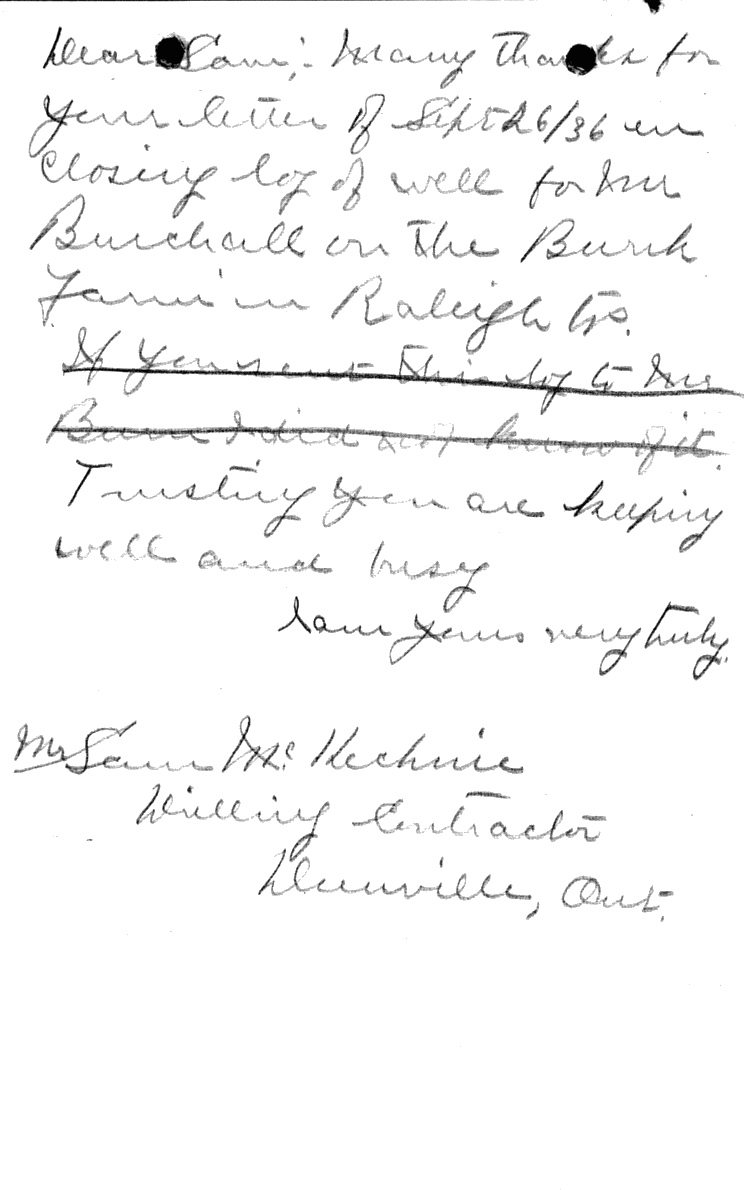 Dear Sam:- Many thanks for
your letter of Sept 26/36 en
closing log of well for Mr
Burchall on the Burk
Farm in Raleigh tp.
If you sent this log to Mr
I did not know of it.
Trusting you are keeping
well and busy
I am yours very truly.
Mr Sam Mc Kechnie
Drilling Contractor
Dunnville, Ont.